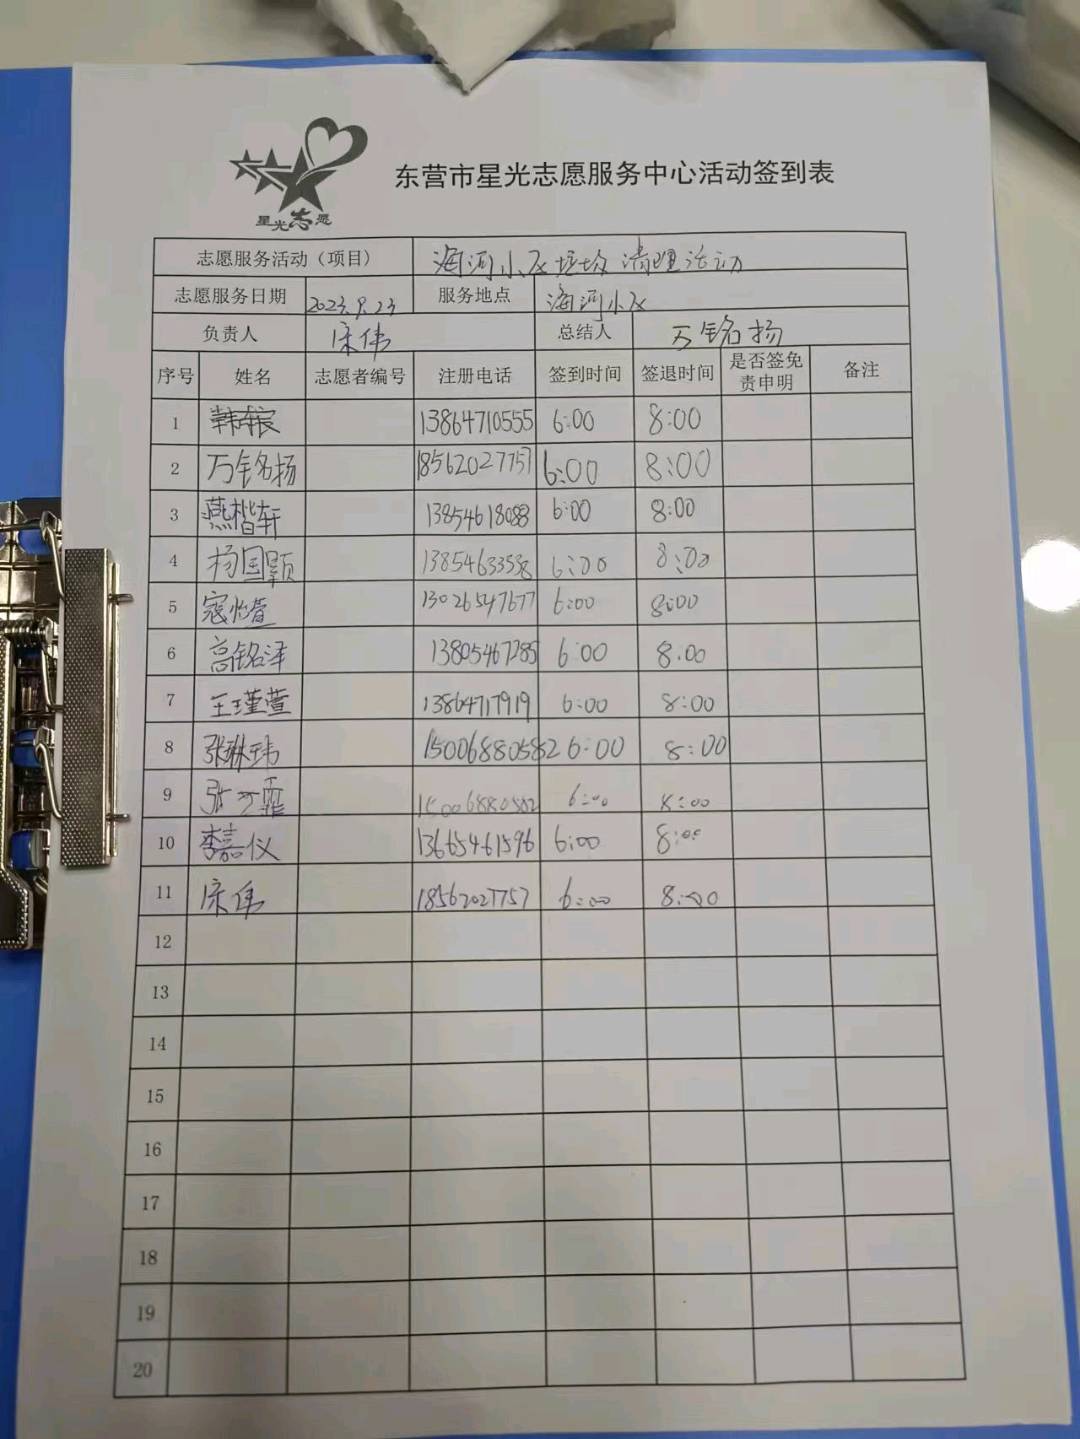 星光志愿
东营市星光志愿服务中心活动签到表
志愿服务活动（项目） 海河小区垃圾清理活动
志愿服务日期 2023.9.23 服务地点 海河小区
负责人 宋伟 总结人 万铭扬
序号 姓名 志愿者编号 注册电话 签到时间 签退时间 是否签免责申明 备注
1 13864710555 6:00 8:00
2 万铭扬 18562027757 6:00 8:00
3 燕楷轩 13854618088 6:00 8:00
4 杨国颢 6:00 8:00
5 寇怡萱 13026547677 6:00 8:00
6 高铭泽 13805467785 6:00 8:00
7 王瑾萱 13864717919 6:00 8:00
8 张琳玮 15006880582 6:00 8:00
9 张 霏 15006880582 6:00 8:00
10 李嘉仪 13665461596 6:00 8:00
11 宋伟 18562027757 6:00 8:00
12
13
14
15
16
17
18
19
20